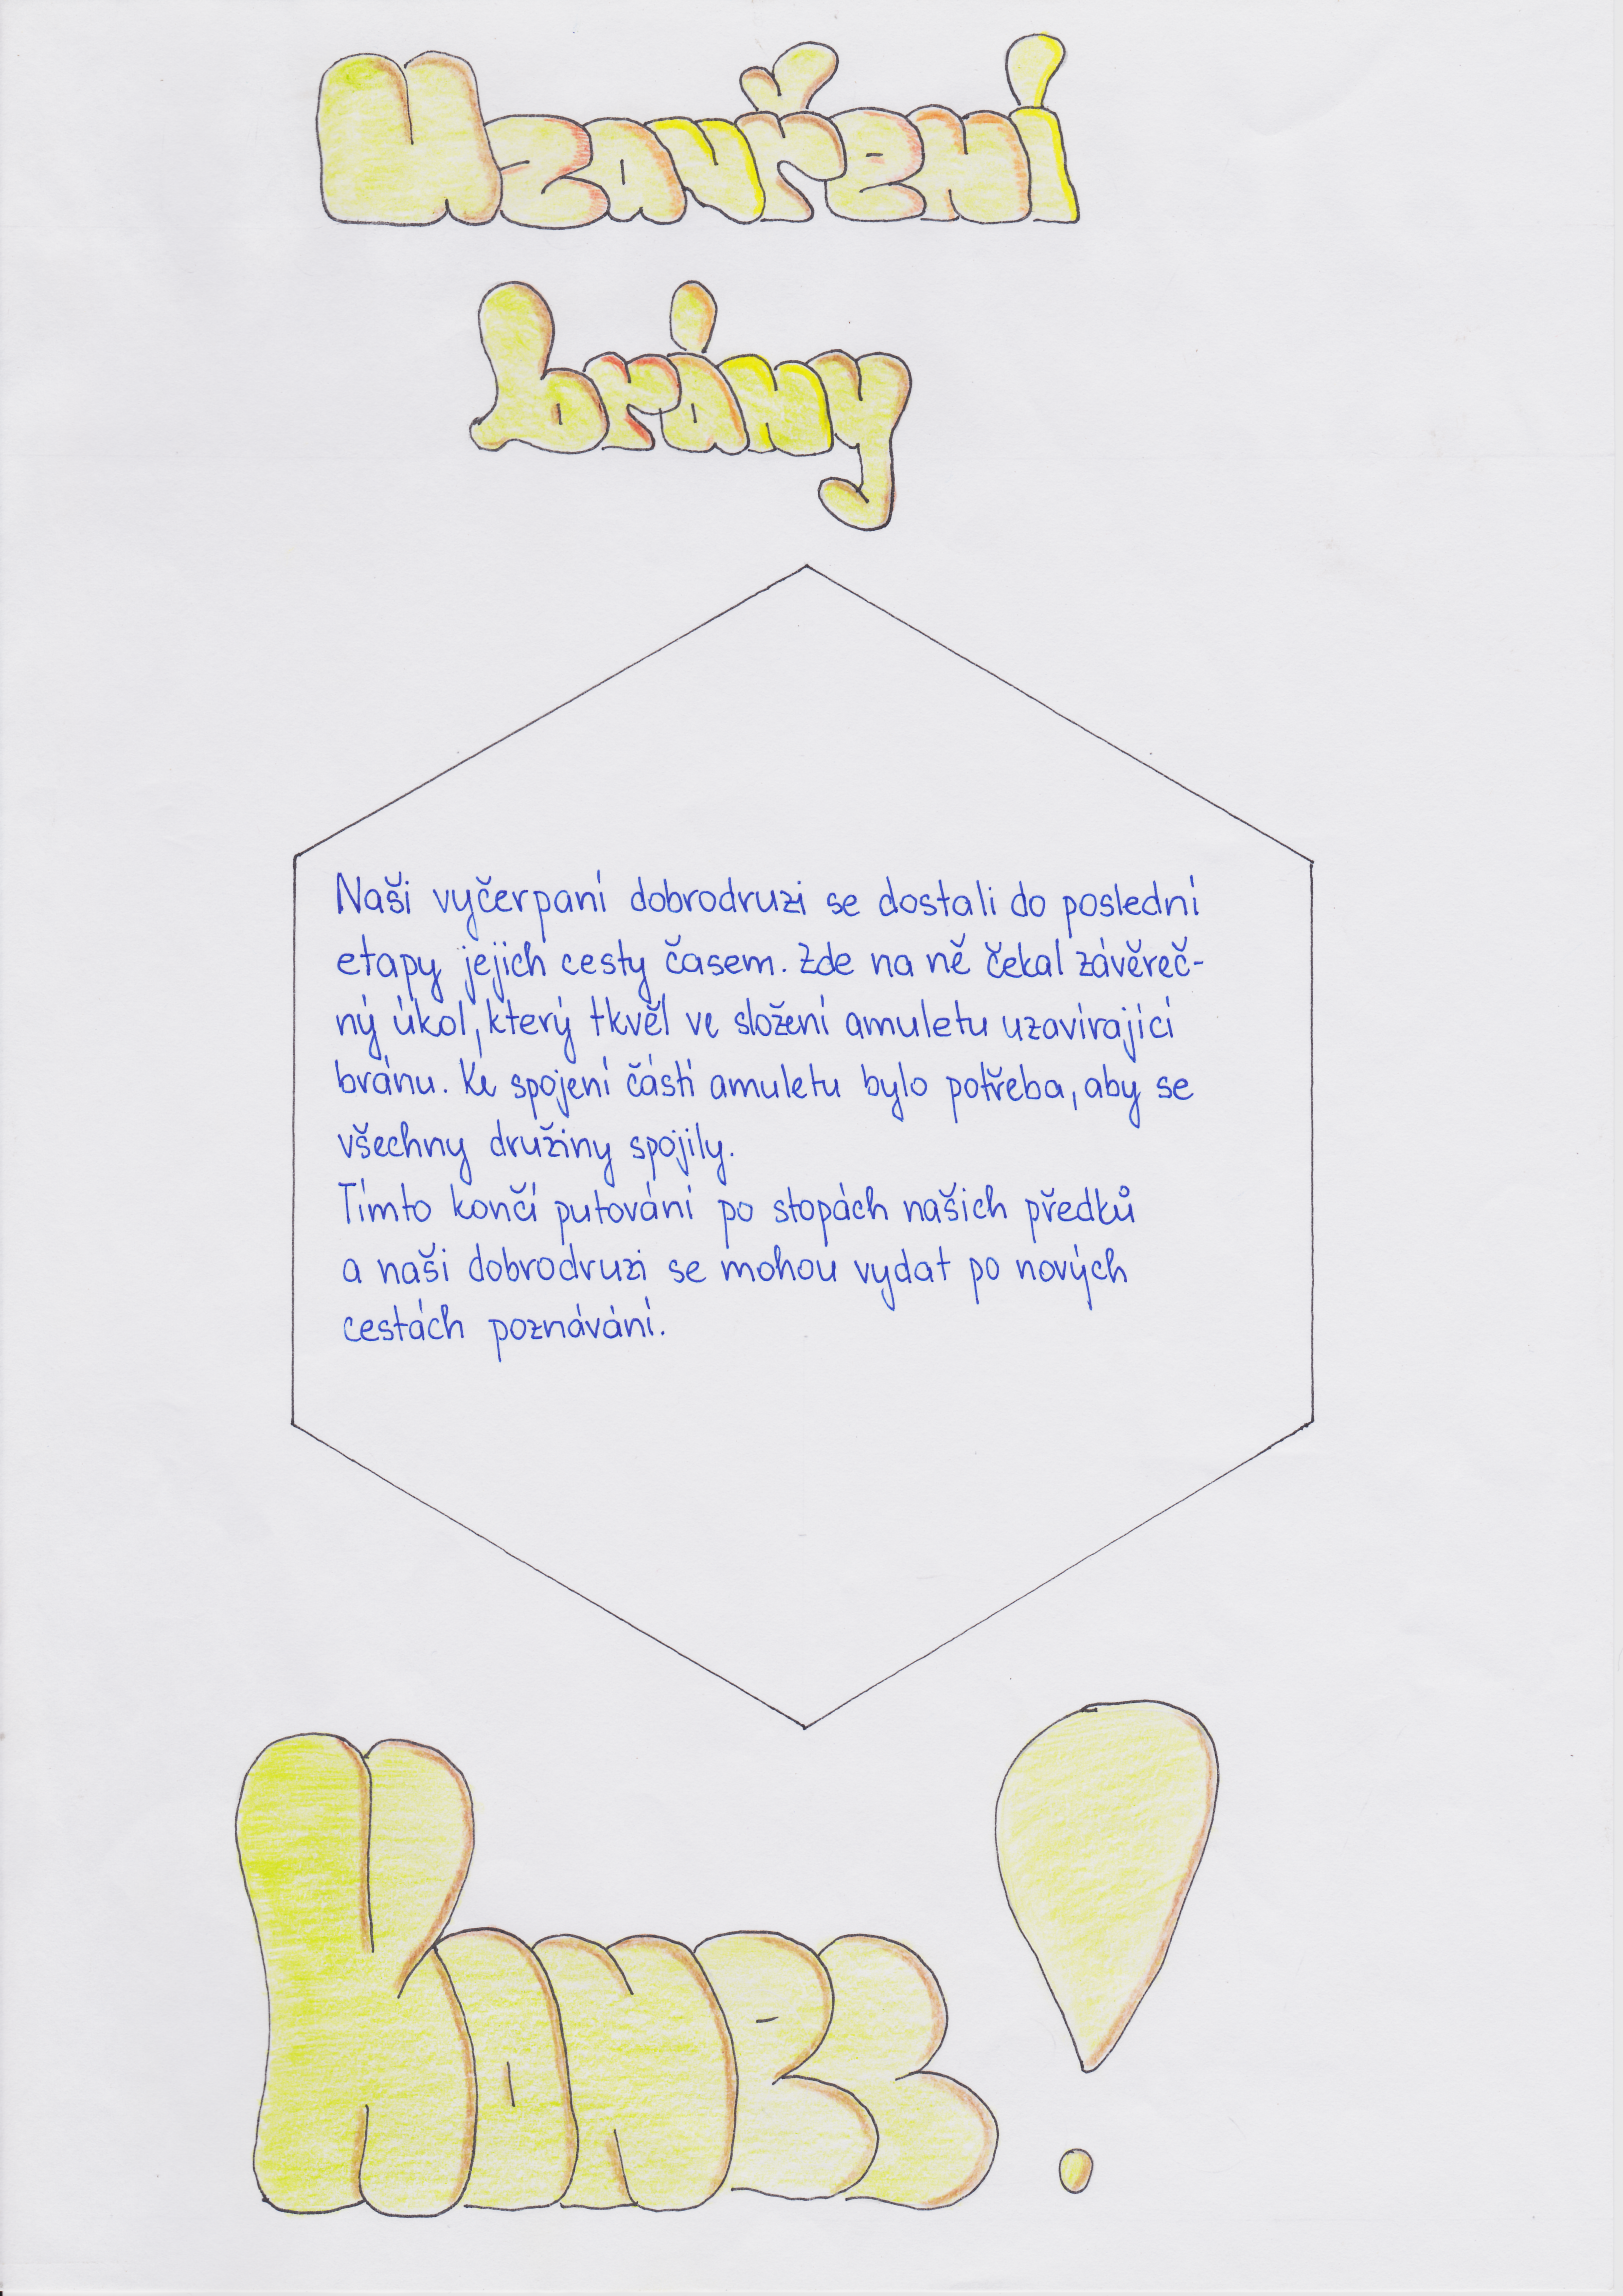 Uzavření
brány
Naši vyčerpaní dobrodruzi se dostali do poslední
etapy jejich cesty časem. Zde na ně čekal závěreč-
ný úkol, který tkvěl ve složení amuletu uzavírající
bránu. Ke spojení částí amuletu bylo potřeba, aby se
všechny družiny spojily.
Tímto končí putování po stopách našich předků
a naši dobrodruzi se mohou vydat po nových
cestách poznávání.
Konec!